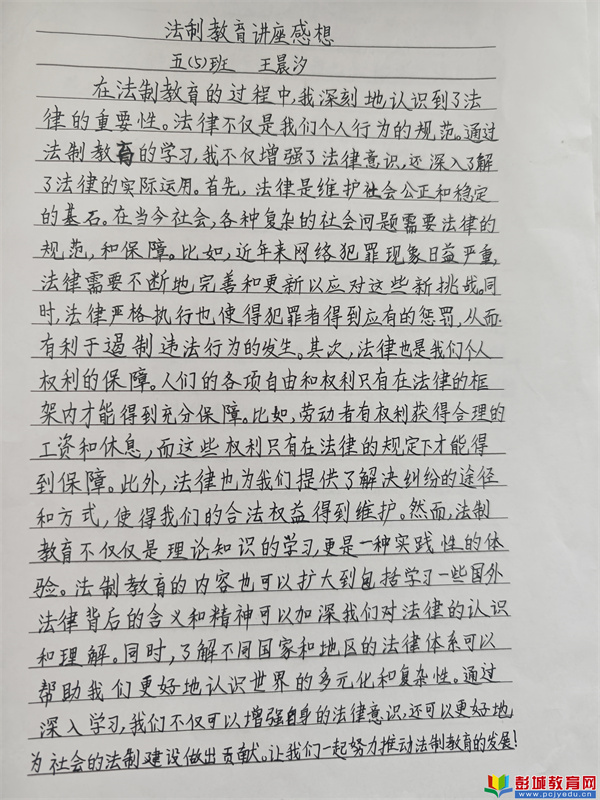 法制教育讲座感想
五(5)班 王晨汐
在法制教育的过程中,我深刻地认识到了法
律的重要性。法律不仅是我们个人行为的规范。通过
法制教育的学习,我不仅增强了法律意识,还深入了解
了法律的实际运用。首先,法律是维护社会公正和稳定
的基石。在当今社会,各种复杂的社会问题需要法律的
规范,和保障。比如,近年来网络犯罪现象日益严重,
法律需要不断地完善和更新以应对这些新挑战。同
时,法律严格执行也使得犯罪者得到应有的惩罚,从而
有利于遏制违法行为的发生。其次,法律也是我们个人
权利的保障。人们的各项自由和权利只有在法律的框
架内才能得到充分保障。比如,劳动者有权利获得合理的
工资和休息,而这些权利只有在法律的规定下才能得
到保障。此外,法律也为我们提供了解决纠纷的途径
和方式,使得我们的合法权益得到维护。然而,法制
教育不仅仅是理论知识的学习,更是一种实践性的体
验。法制教育的内容也可以扩大到包括学习一些国外
法律背后的含义和精神可以加深我们对法律的认识
和理解。同时,了解不同国家和地区的法律体系可以
帮助我们更好地认识世界的多元化和复杂性。通过
深入学习,我们不仅可以增强自身的法律意识,还可以更好地
为社会的法制建设做出贡献。让我们一起努力推动法制教育的发展!
彭城教育网
www.pcjyedu.cn